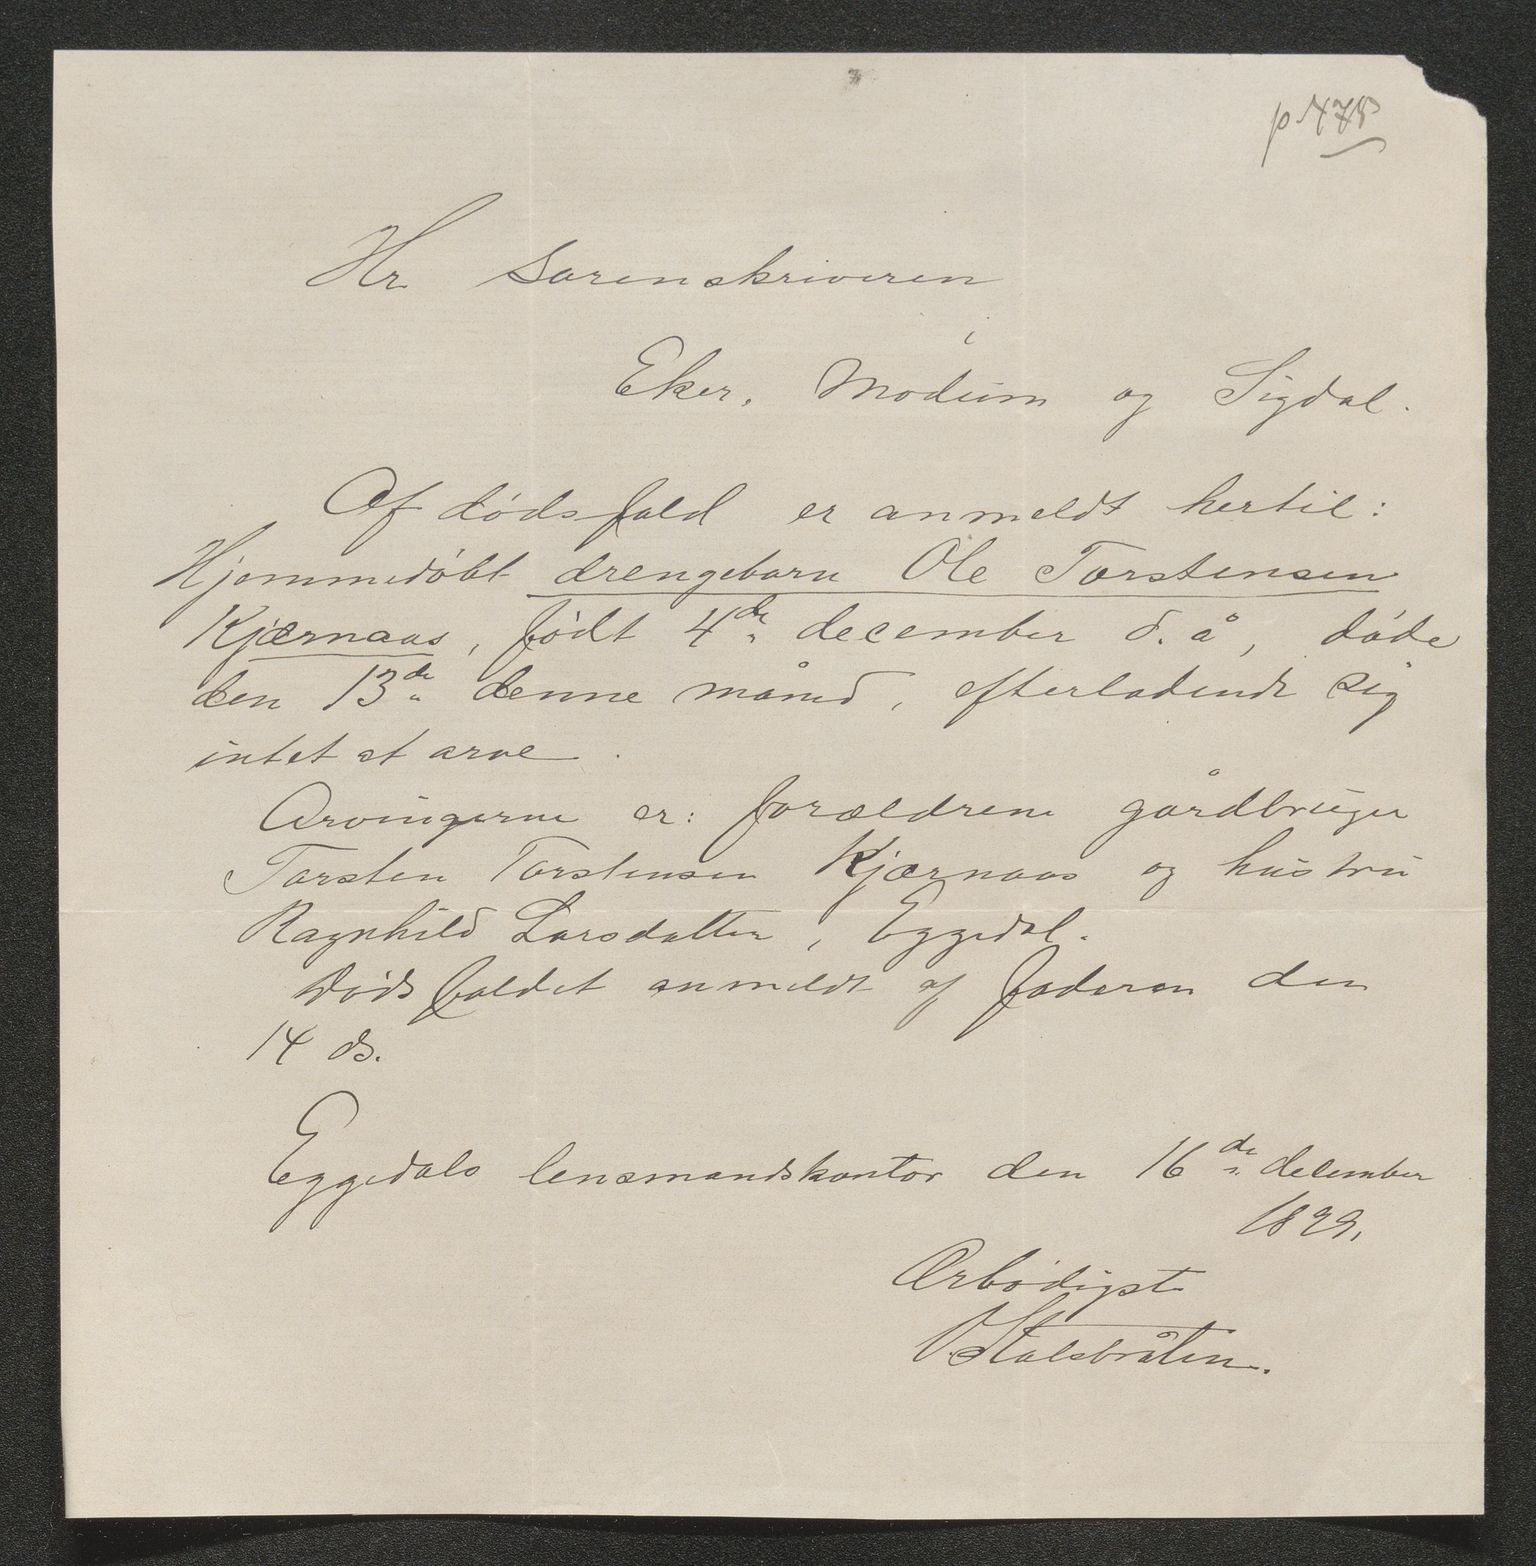 p 478
Hr Sorenskriveren
i
Eker, Modum og Sigdal.
Af dødsfald er anmeldt hertil:
Hjemmedøbt drengebarn Ole Torstensen
Kjærnaas, født 4de december d. å, døde
den 13de denne måned, efterladende sig
intet at arve.
Arvingerne er: forældrene gårdbruger
Torsten Torstensen Kjærnaas og hustru
Ragnhild Larsdatter, Eggedal.
Dødsfaldet anmeldt af faderen den
14 ds.
Eggedals lensmandskontor den 16de december
1899.
Ærbødigst
Stalsbråten.